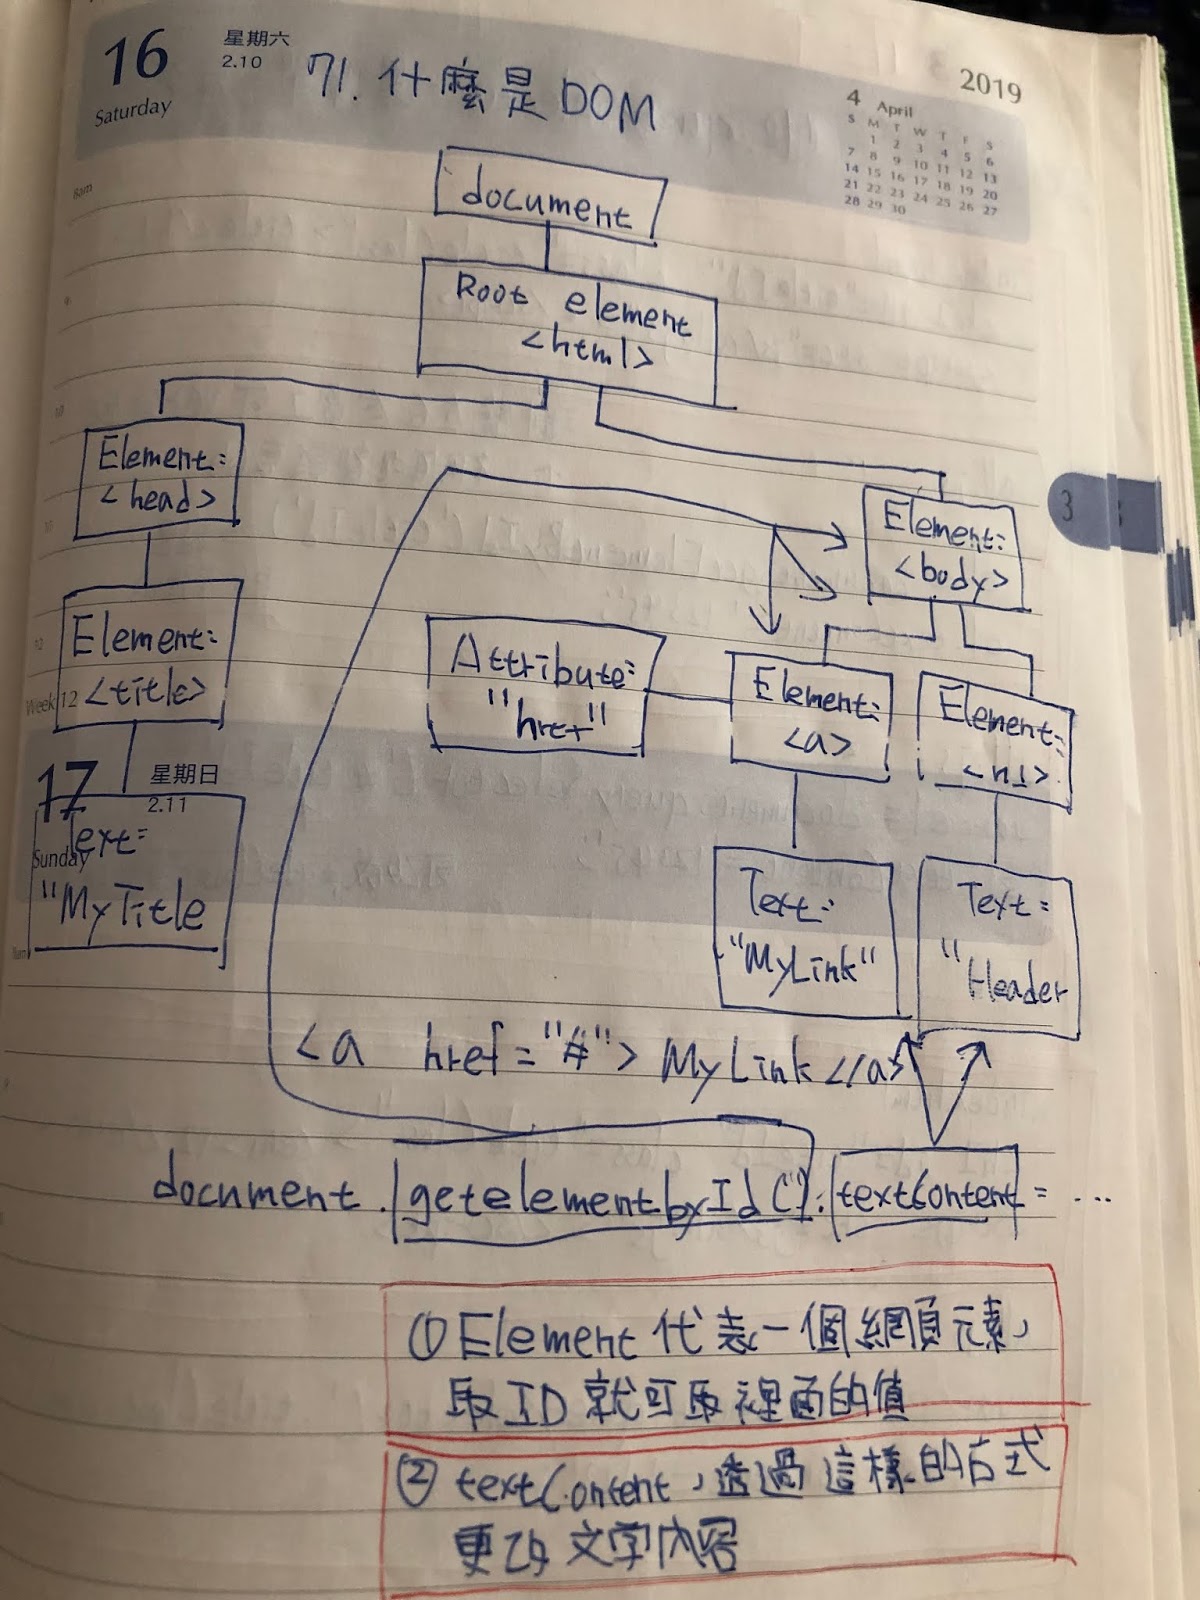 16
Saturday
星期六
2.10
71. 什麼是DOM
2019
4 April
S M T W T F S
1 2 3 4 5 6
7 8 9 10 11 12 13
14 15 16 17 18 19 20
21 22 23 24 25 26 27
28 29 30
8am
document
Root element
<html>
Element:
<head>
Element:
<body>
3
Element:
<title>
Week 12
Attribute:
"href"
Element:
<a>
Element:
<h1>
17
Sunday
星期日
2.11
Text:
"MyTitle
Text:
"MyLink"
Text:
"Header
<a href="#"> MyLink </a>
document.getelementbyId(').textContent = ...
① Element 代表一個網頁元素,
取ID 就可取裡面的值
② textContent,透過這樣的方式
更改文字內容